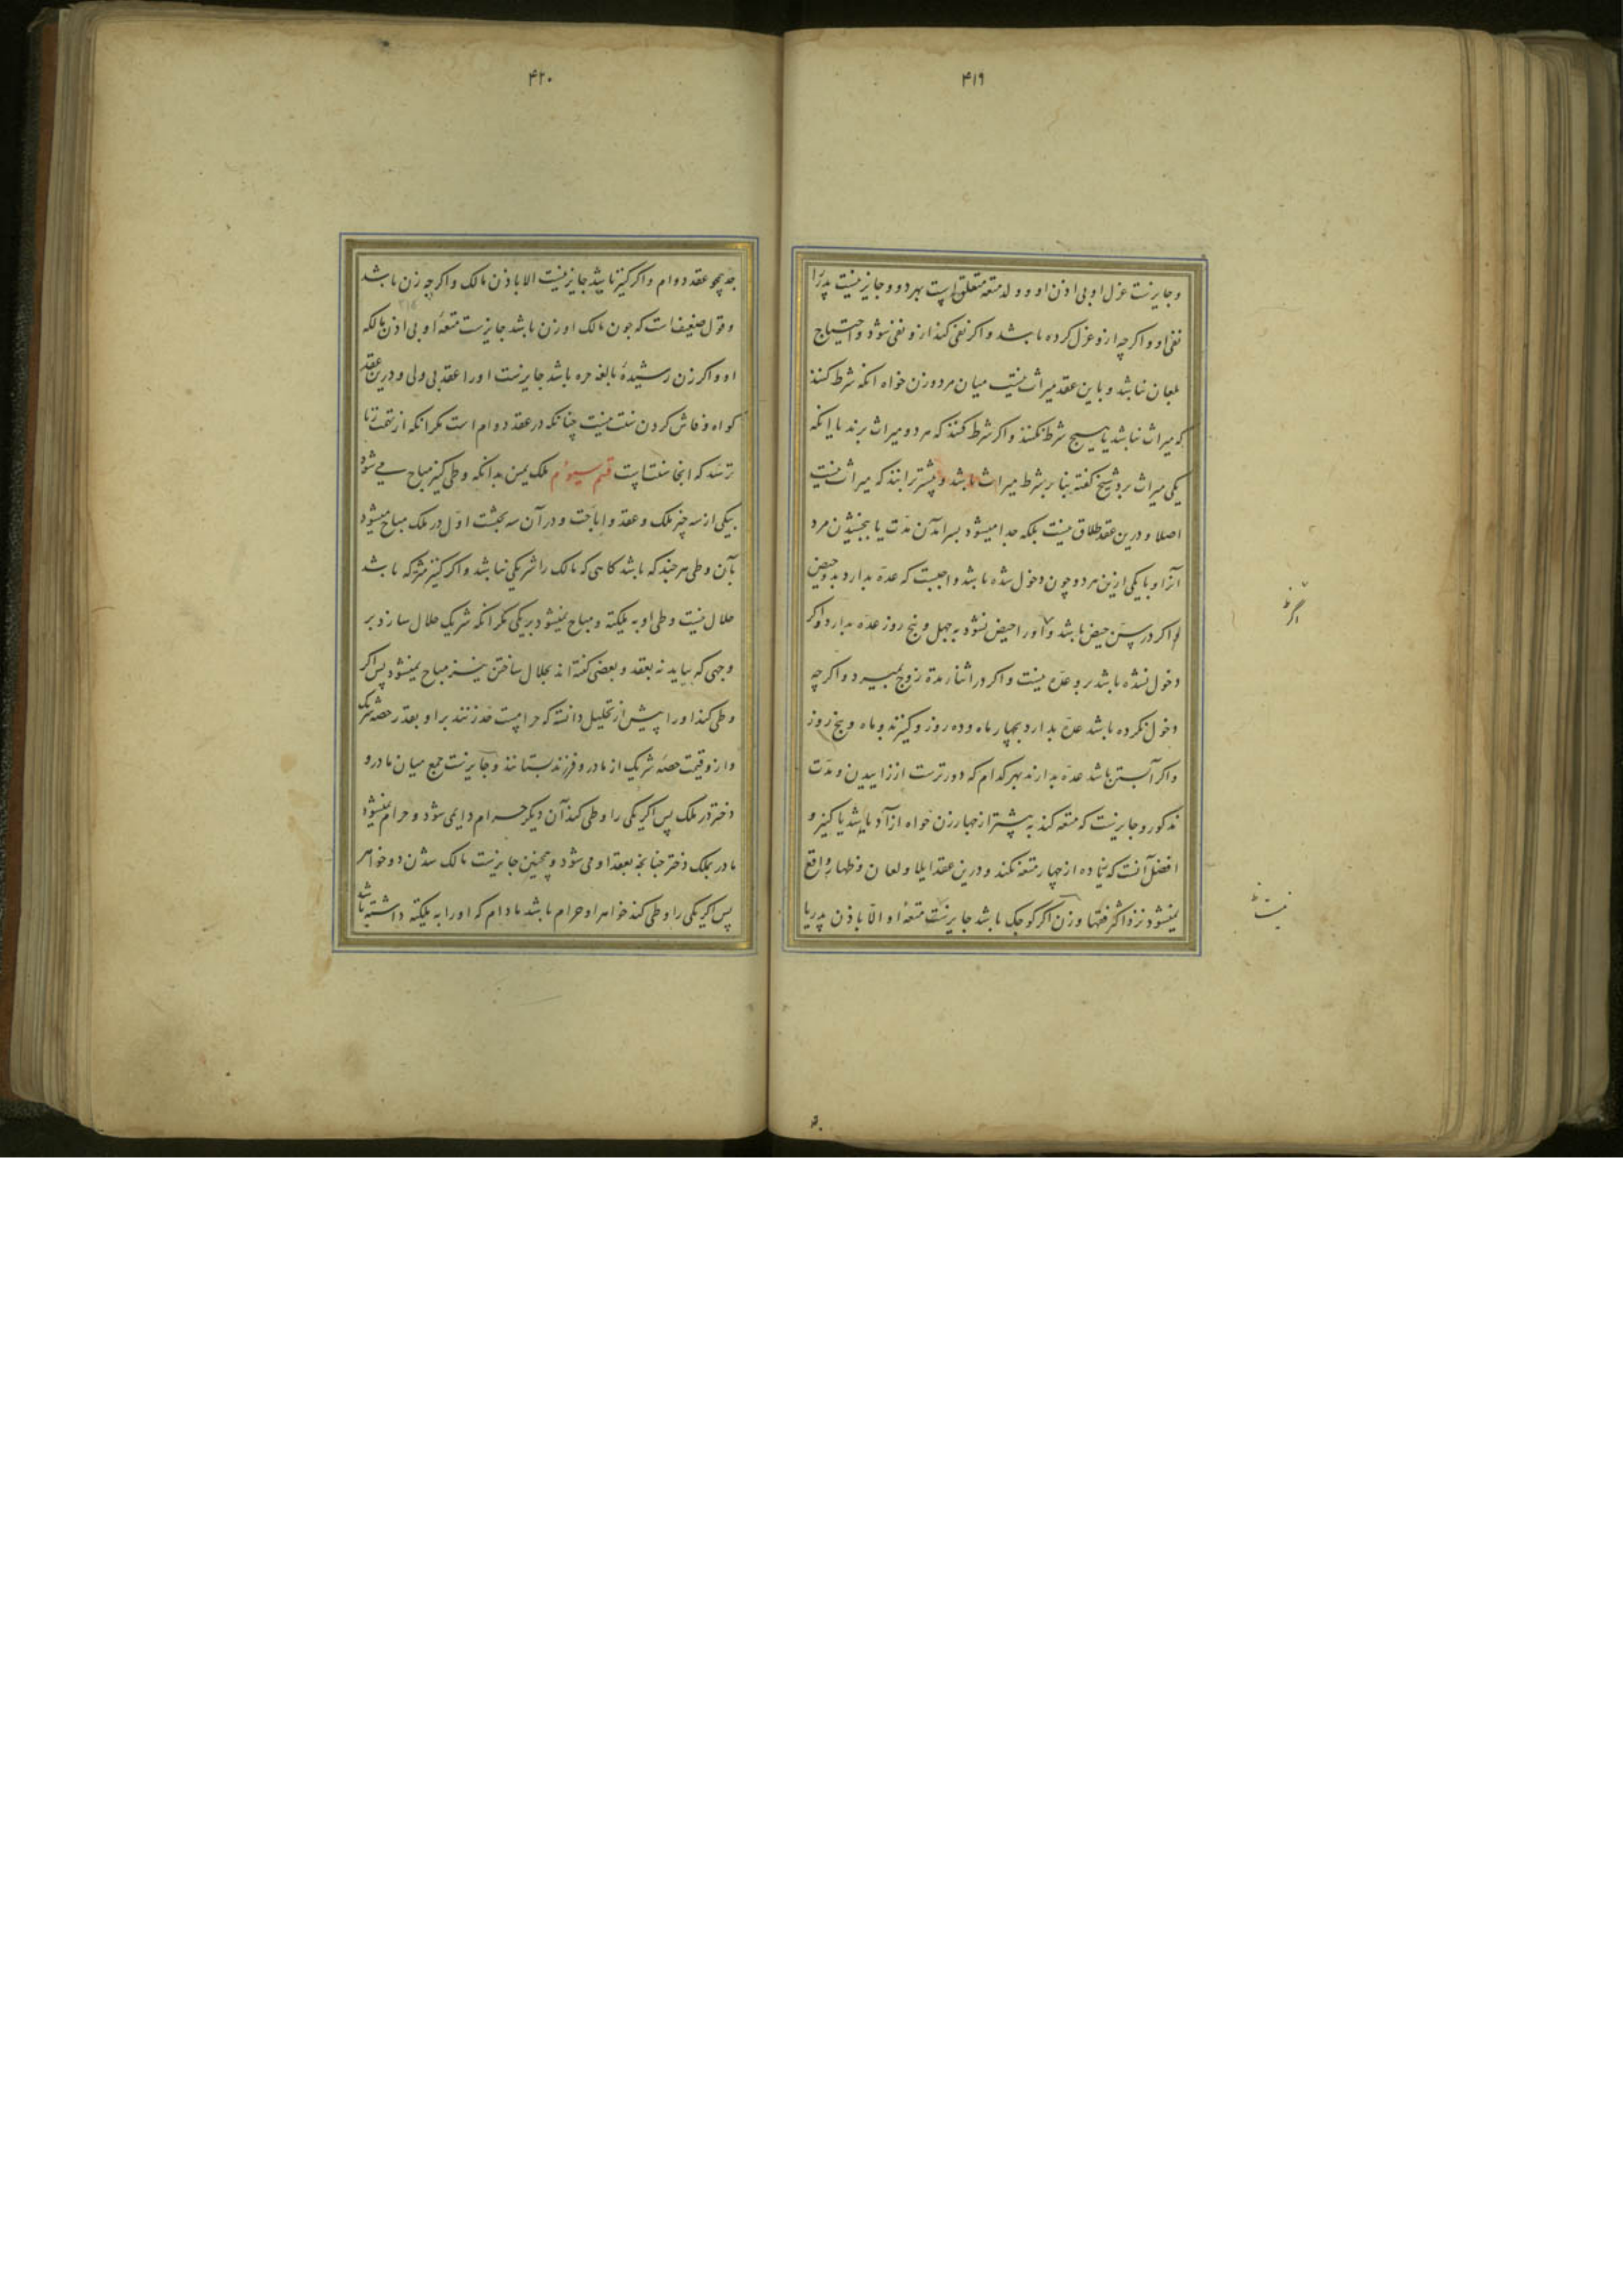 ۴۱۹
وجایزست عزل او بی اذن او و ولد متعه متعلق است بهر دو و جایز نیست پدر را
نفی او و اکرچه ازو عزل کرده باشد و اکر نفی کند ازو نفی شود و احتیاج
بلعان نباشد و باین عقد میراث نیست میان مرد و زن خواه انکه شرط کنند
که میراث نباشد یا هیچ شرط نکنند و اکر شرط کنند که هر دو میراث برند یا انکه
یکی میراث برد شیخ کفته بنا بر شرط میراث باشد و بیشتر برانند که میراث نیست
اصلا و درین عقد طلاق نیست بلکه جدا میشود بسر امدن مدت یا ببخشیدن مرد
آنرا و با یکی ازین هر دو چون دخول شده باشد واجبست که عده بدارد بدو حیض
و اکر در سن حیض باشد و اورا حیض نشود به چهل و پنج روز عده بدارد و اکر
دخول نشده باشد برو عده نیست و اکر در اثناء مدة زوج بمیرد و اکرچه
دخول نکرده باشد عده بدارد بچهار ماه و ده روز و کنیز بدو ماه و پنج روز
و اکر آبستن باشد عده بدارند بهر کدام که دورترست از زاییدن و مدت
مذکور و جایزست که متعه کند به بیشتر از چهار زن خواه ازاد باشد یا کنیز و
افضل آنست که زیاده از چهار متعه نکند و درین عقد ایلا و لعان و ظهار واقع
نمیشود نزد اکثر فقها و زن اکر کوچک باشد جایز نیست متعهٔ او الّا باذن پدر یا
نیست
۴۲۰
جد همچو عقد دوام و اکر کنیز باشد جایز نیست الا باذن مالک و اکرچه زن باشد
و قول ضعیف است که چون مالک او زن باشد جایزست متعهٔ او بی اذن مالکه
او و اکر زن رشیدهٔ بالغه حره باشد جایزست اورا عقد بی ولی و درین عقد
کواه و فاش کردن سنت نیست چنانکه در عقد دوام است مکر انکه از تهمت زنا
ترسد که انجا سنت است قسم سیوم ملک یمین بدانکه وطی کنیز مباح می شود
بیکی از سه چیز ملک و عقد و اباحت و در آن سه بحثست اول در ملک مباح میشود
بآن وطی هر چند که باشد کاهی که مالک را شریکی نباشد و اکر کنیز مشترکه باشد
حلال نیست وطی او به ملکیّه و مباح نمیشود بر یکی مکر انکه شریک حلال سازد بر
وجهی که بیاید نه بعقد و بعضی کفته اند بحلال ساختن نیز مباح نمیشود پس اکر
وطی کند اورا پیش از تحلیل دانسته که حرامست حد زنند بر او بقدر حصه شریک
و ازو قیمت حصه شریک از مادر و فرزند بستانند و جایزست جمع میان مادر و
دختر در ملک پس اکر یکی را وطی کند آن دیکر حرام دایمی شود و حرام نمیشود
مادر بملک دختر چنانچه بعقد او می شود و همچنین جایزست مالک شدن دو خواهر
پس اکر یکی را وطی کند خواهر او حرام باشد مادام که اورا به ملکیه داشته باشد